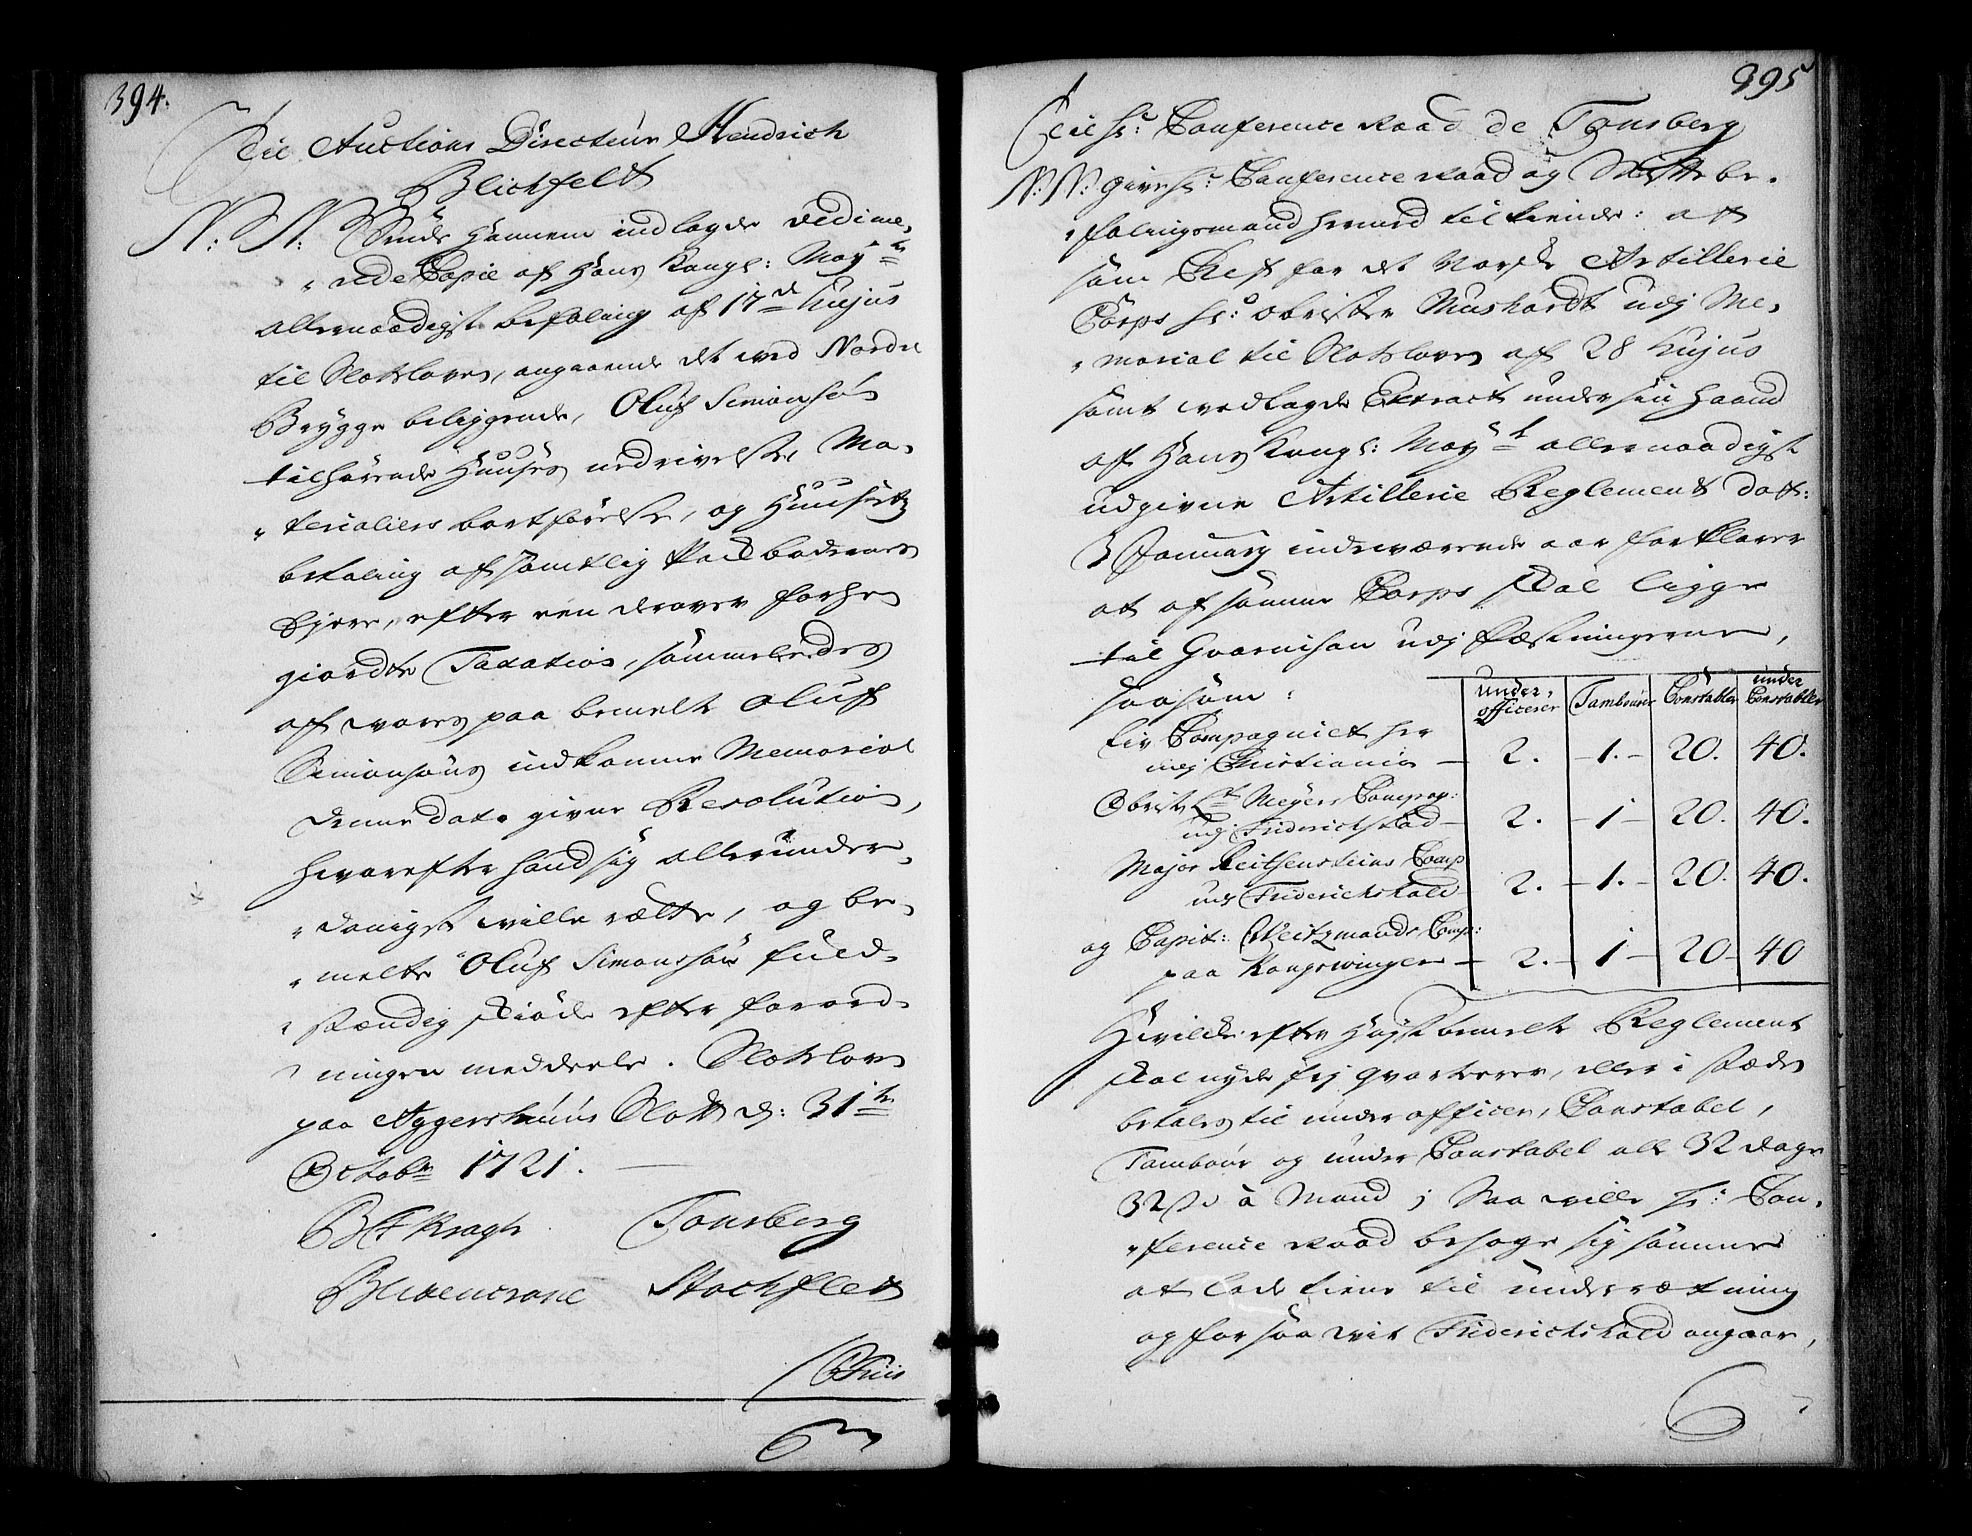 394.
Til Auctions Directeur Hendrich
Blichfeldt
N: N: Sende hannem indlagde vedime,
„rede Copie af Hans Kongl: Mayts
allernaadigste befaling af 17de hujus
til Slotzloven, angaaende det ved Nordre
Brygge beliggende, Oluf Simensøns
tilhørende Huuses nedrivelse, Ma,
„terialiers bortførelse, og Huusets
betaling af samtlig Pakboderness
Ejere, efter een derover forhen
giordte Taxation, sammeledes
af vores paa bemelte Oluf
Simonsøns indkomne Memorial
denne dato givne Resolution,
hvorefter hand sig allerunder,
„danigst ville rætte, og be,
„melte Oluf Simonsøn fuld,
„stændig skiøde efter forord,
„ningen meddeele. Slotzloven
paa Aggershuus Slott d: 31te
Octobr 1721.
B F Kragh Tonsberg
Blixencrone Stockfledt
Friis
395
Til Hr: Conference Raad de Tonsberg
N: N: give Hr: Conference Raad og Stiftsbe,
„falingsmand hermed tilkiende: at
som Chef for det Norske Artillerie
Corps Hr: Obrister Mushardt udj Me,
„morial til Slotzloven af 28 hujus
samt vedlagde Extract under sin haand
af Hans Kongl: Mayts allernaadigst
udgivne Artillerie Reglement dat:
3 January indeværende aar forklarer
at af samme Corps skal ligge
til Guarnison udj Fæstningerne,
saasom: under, officerer Tambourer Constabler under Constabler
Liv Compagniet her
udj Christiania — 2. – 1. – 20. 40.
Obriste Lt Meyers Compag:
udj Friderichstad – 2. – 1 – 20. 40.
Major Reitzensteins Comp
udj Friderichshald 2. – 1. – 20. 40.
og Capit: Weitzmands Comp:
paa Kongswinger – 2. – 1 – 20 – 40
Hvilke efter høystbemelte Reglement
skal nyde frj Qvarterer, eller i stæden
betales til under officer, Constabel,
Tambour og under Constabel alle 32 dage
32 s a Mand; Saa ville Hr: Con,
„ference Raad behage sig samme
at lade tiene til underrætning
og for saa vit Friderichshald angaar,